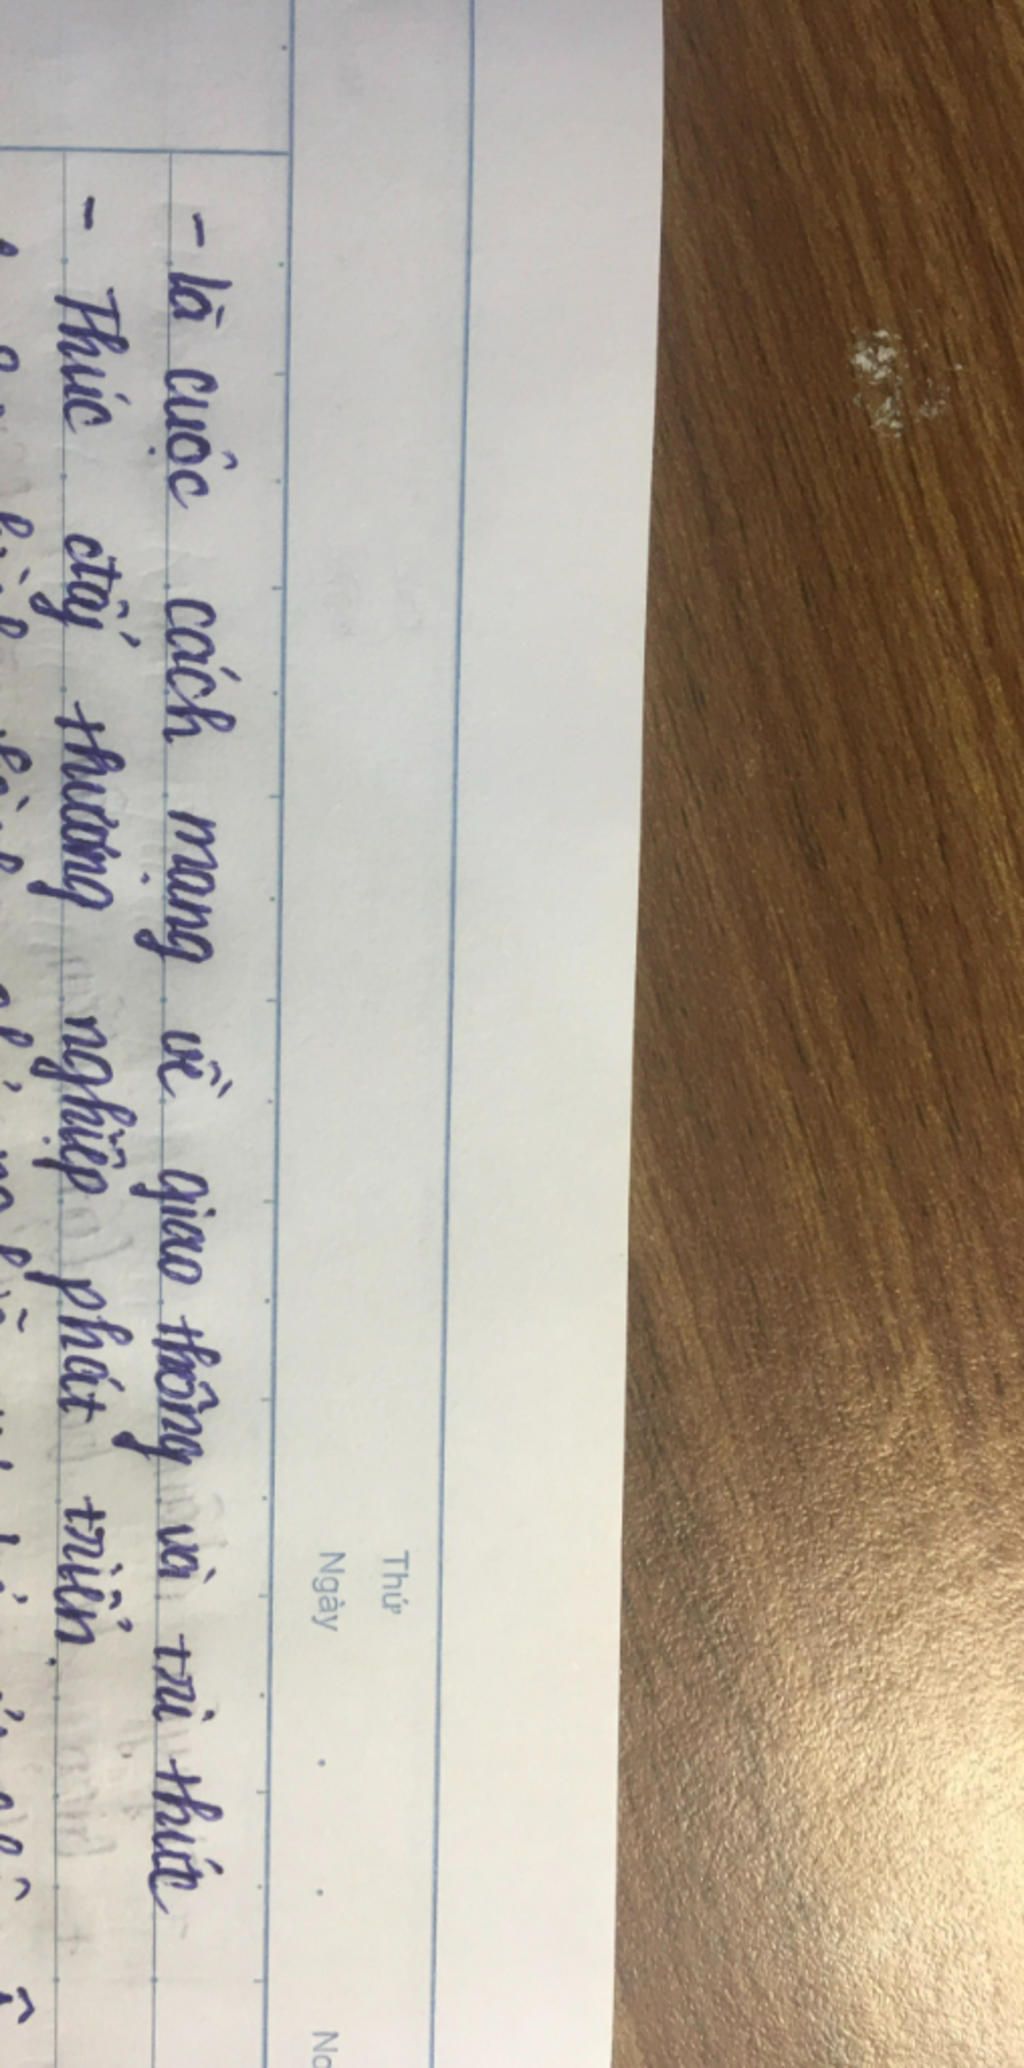 Thứ
Ngày No
- là cuộc cách mạng về giao thông và tri thức
- Thúc đẩy thương nghiệp phát triển.